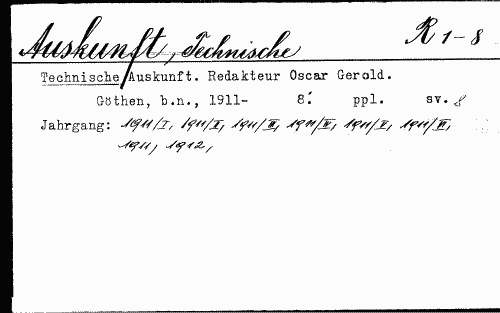 Auskunft, Technische R 1-8
Technische/Auskunft. Redakteur Oscar Gerold.
Göthen, b.n., 1911- 8.' ppl. sv. 8
Jahrgang: 1911/I, 1911/II, 1911/III, 1911/IV, 1911/V, 1911/VI,
1911, 1912,